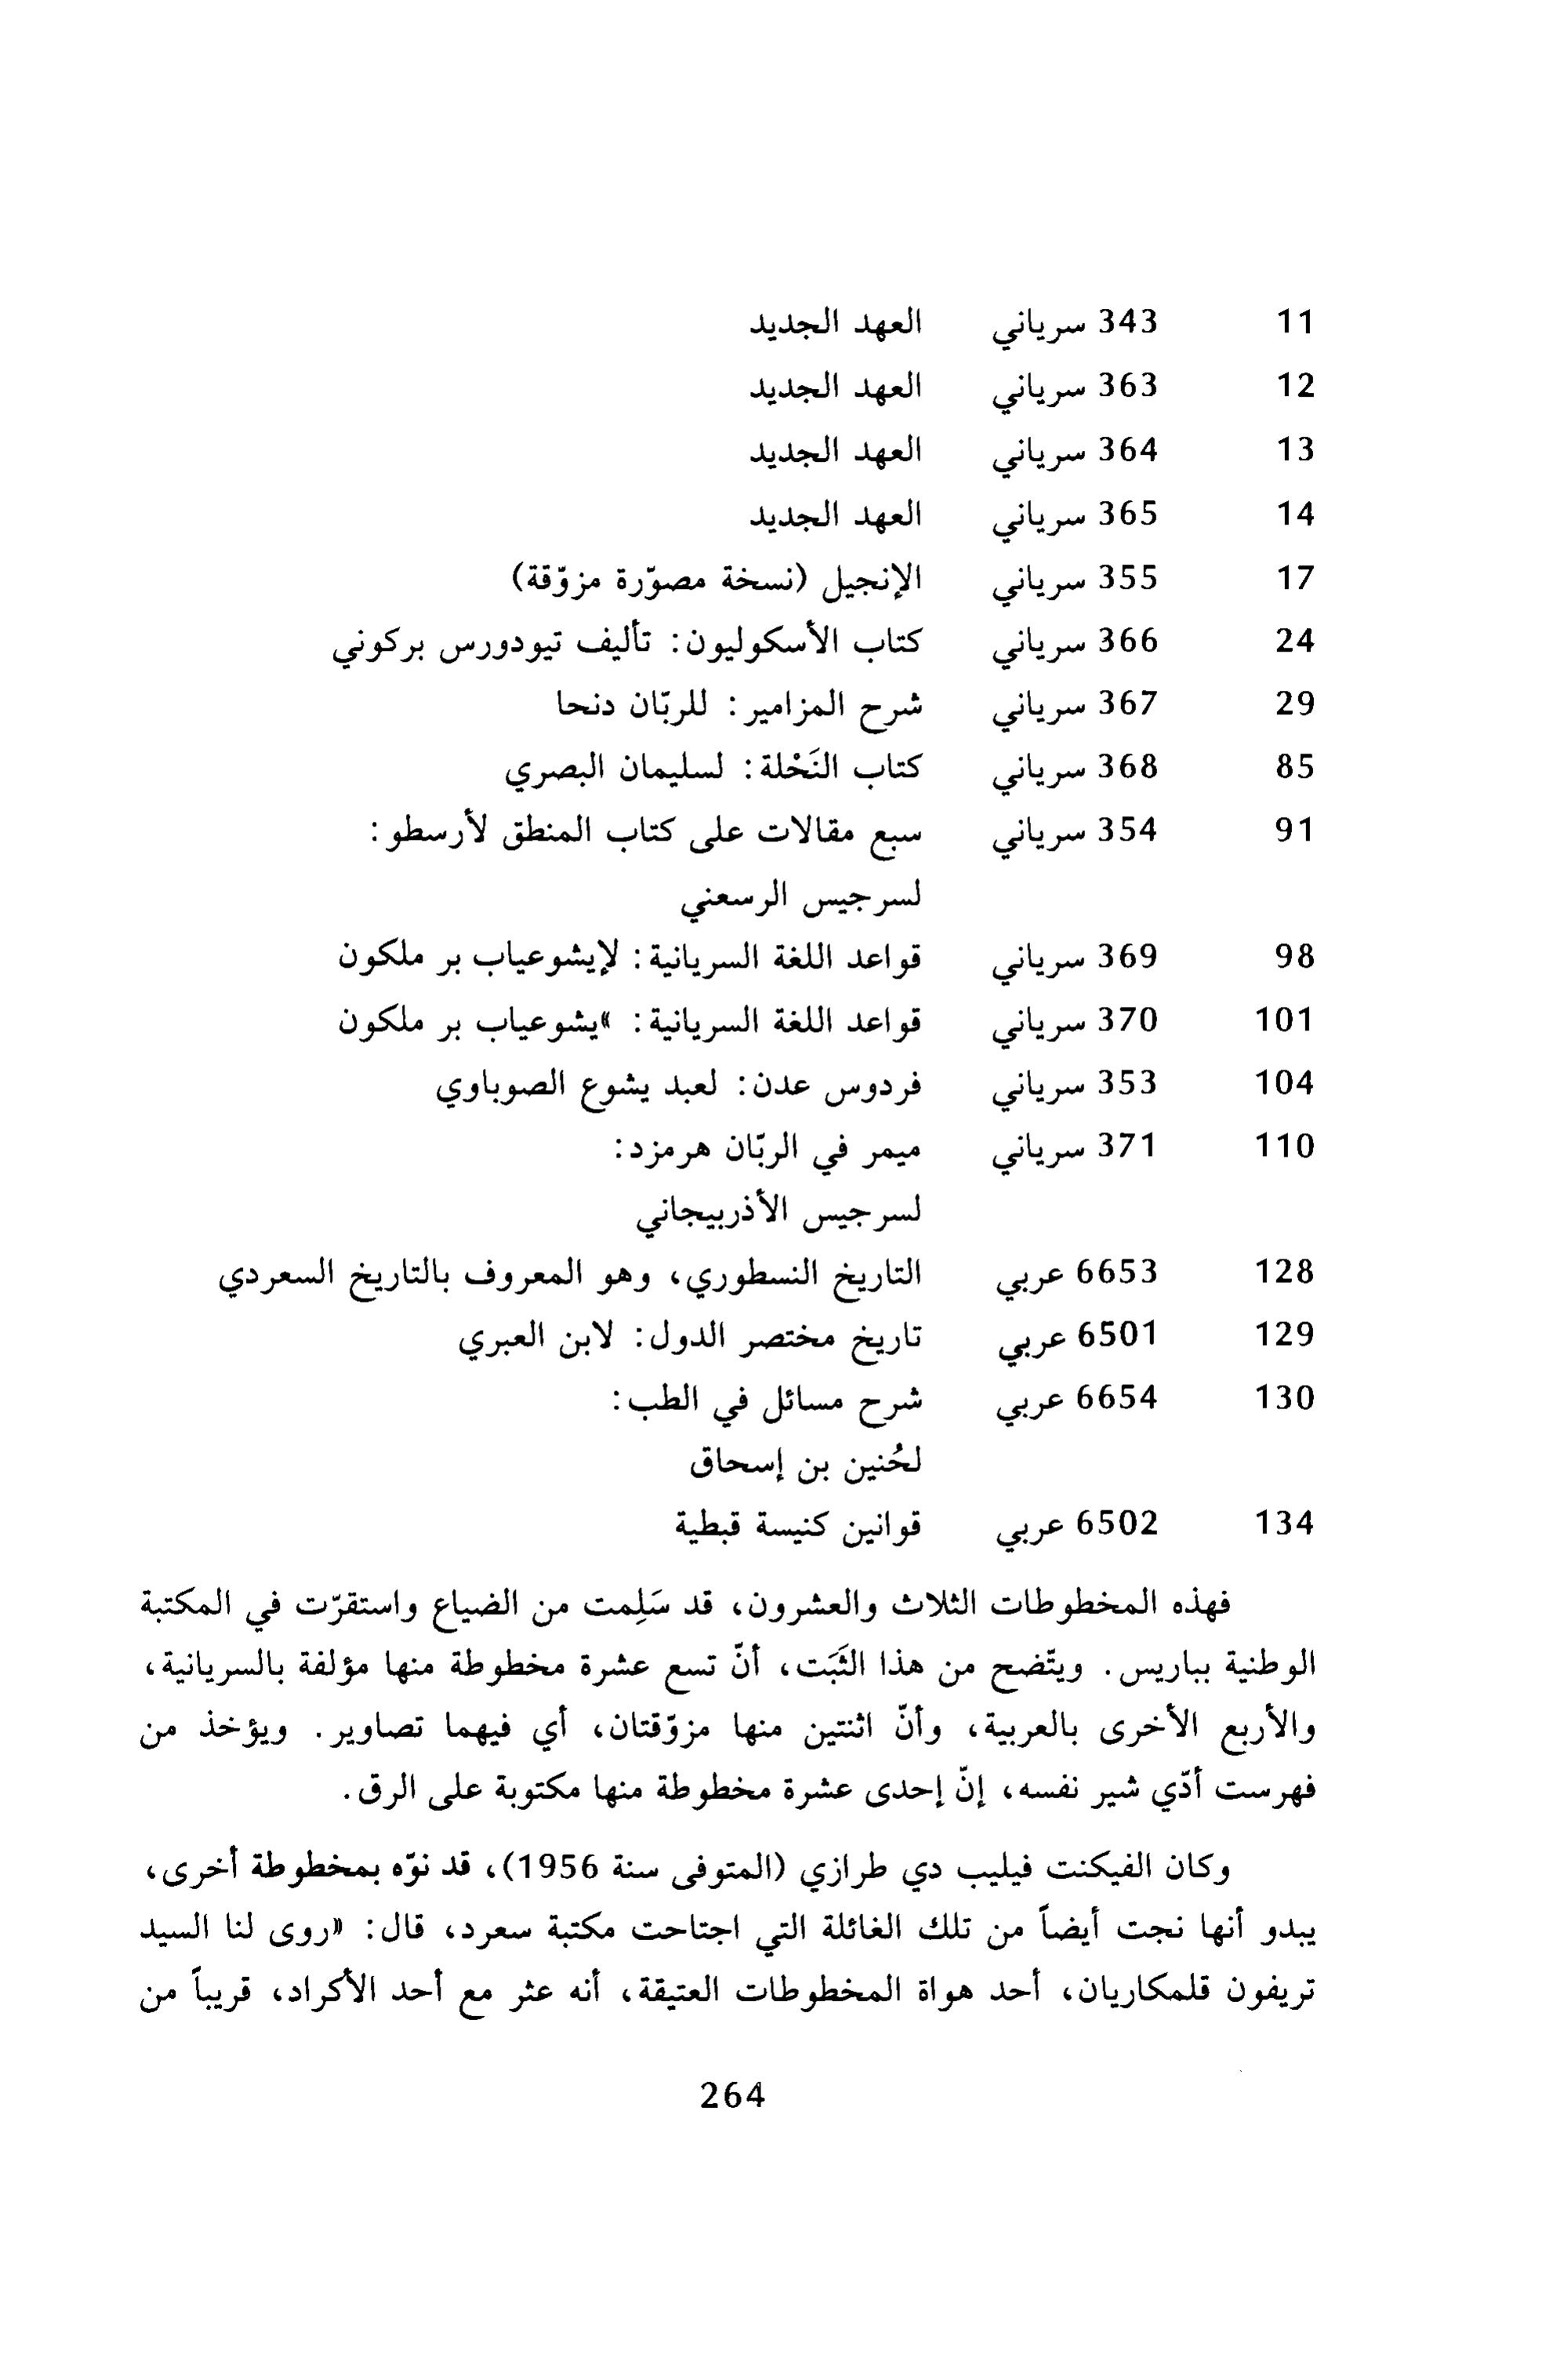 11 343 سرياني العهد الجديد
12 363 سرياني العهد الجديد
13 364 سرياني العهد الجديد
14 365 سرياني العهد الجديد
17 355 سرياني الإنجيل (نسخة مصوّرة مزوّقة)
24 366 سرياني كتاب الأسكوليون: تأليف تيودورس بركوني
29 367 سرياني شرح المزامير: للربّان دنحا
85 368 سرياني كتاب النَحْلة: لسليمان البصري
91 354 سرياني سبع مقالات على كتاب المنطق لأرسطو:
لسرجيس الرسعني
98 369 سرياني قواعد اللغة السريانية: لإيشوعياب بر ملكون
101 370 سرياني قواعد اللغة السريانية: »يشوعياب بر ملكون
104 353 سرياني فردوس عدن: لعبد يشوع الصوباوي
110 371 سرياني ميمر في الربّان هرمزد:
لسرجيس الأذربيجاني
128 6653 عربي التاريخ النسطوري، وهو المعروف بالتاريخ السعردي
129 6501 عربي تاريخ مختصر الدول: لابن العبري
130 6654 عربي شرح مسائل في الطب:
لحُنين بن إسحاق
134 6502 عربي قوانين كنيسة قبطية
فهذه المخطوطات الثلاث والعشرون، قد سَلِمت من الضياع واستقرّت في المكتبة
الوطنية بباريس. ويتّضح من هذا الثَبَت، أنّ تسع عشرة مخطوطة منها مؤلفة بالسريانية،
والأربع الأخرى بالعربية، وأنّ اثنتين منها مزوّقتان، أي فيهما تصاوير. ويؤخذ من
فهرست أدّي شير نفسه، إنّ إحدى عشرة مخطوطة منها مكتوبة على الرق.
وكان الفيكنت فيليب دي طرازي (المتوفى سنة 1956)، قد نوّه بمخطوطة أخرى،
يبدو أنها نجت أيضاً من تلك الغائلة التي اجتاحت مكتبة سعرد، قال: «روى لنا السيد
تريفون قلمكاريان، أحد هواة المخطوطات العتيقة، أنه عثر مع أحد الأكراد، قريباً من
264